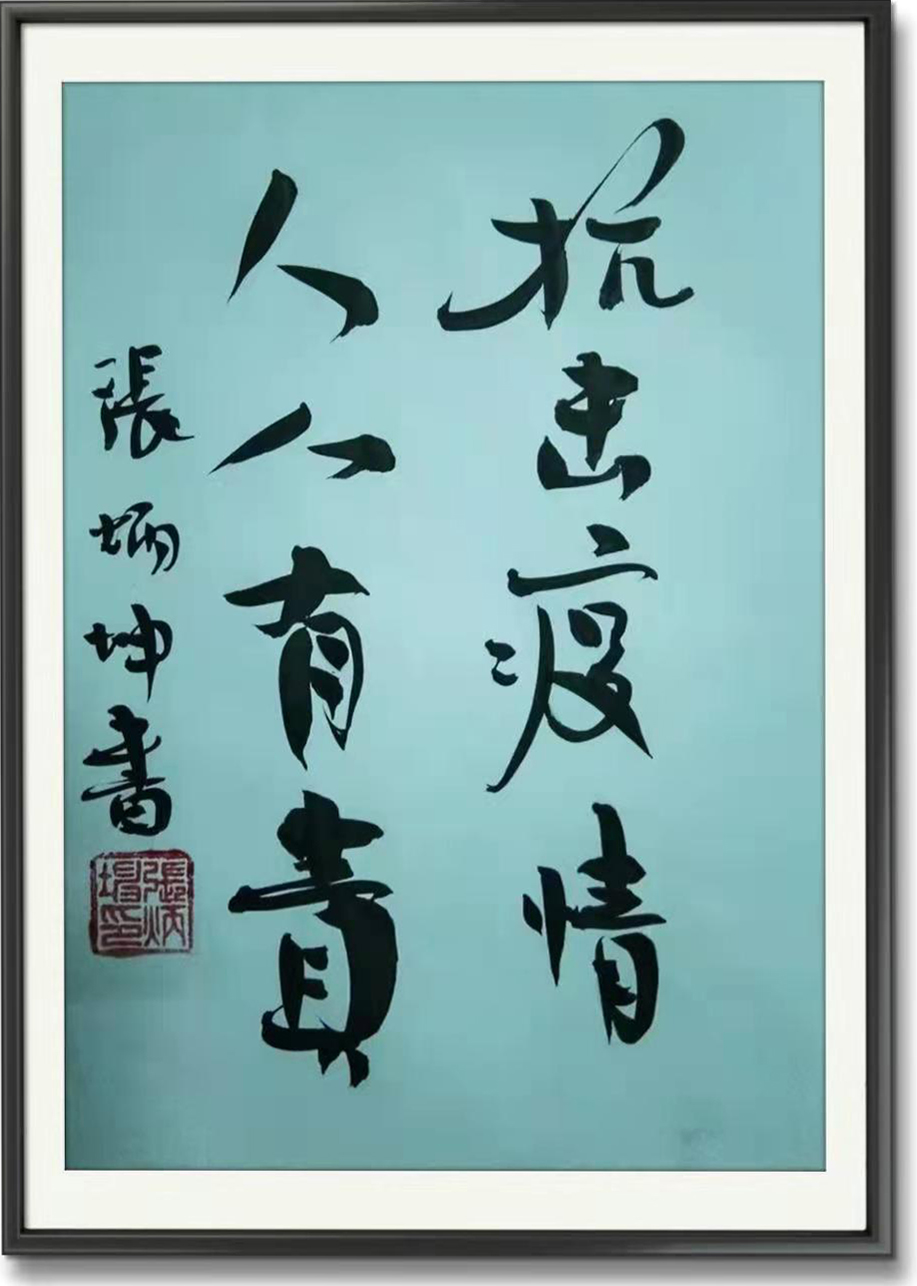 抗击疫情
人人有責
張炳坤書
張炳
印